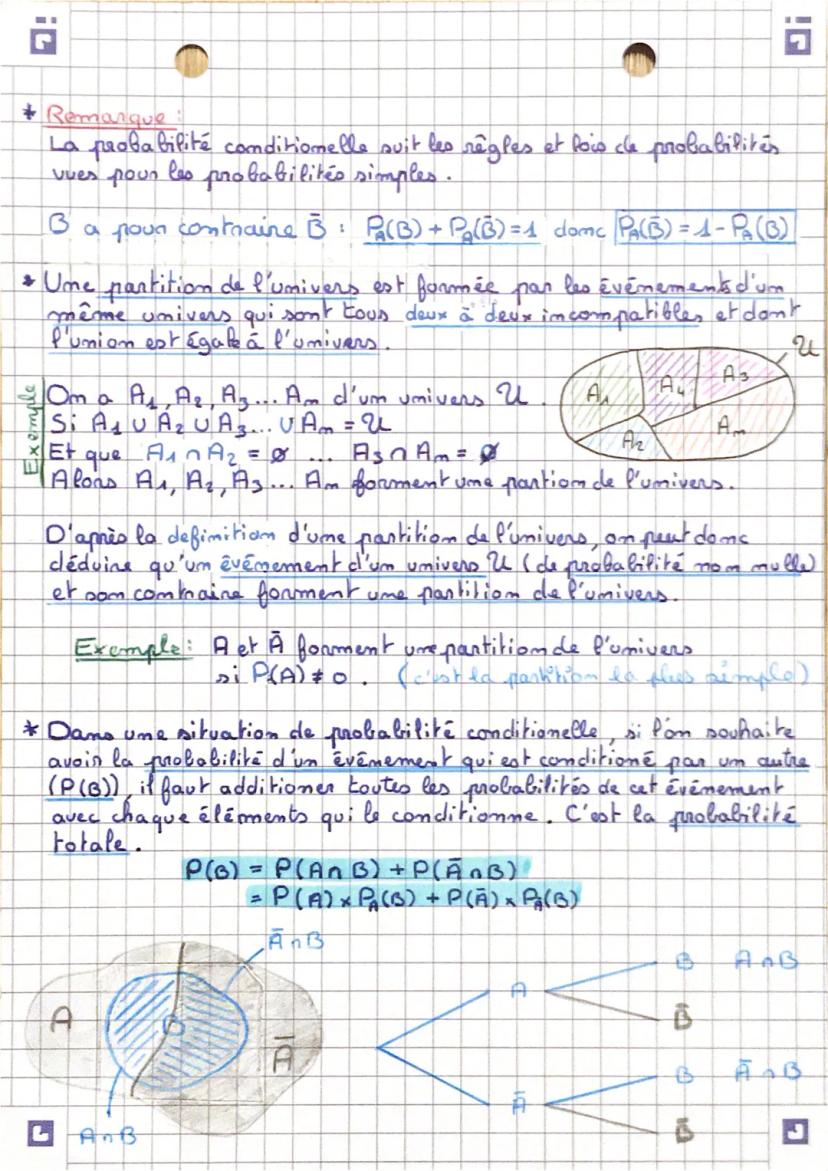 * Remarque :
La probabilité conditionelle suit les règles et lois de probabilités
vues pour les probabilités simples.
B a pour contraire B̄ : P_A(B) + P_A(B̄) = 1 donc P_A(B̄) = 1 - P_A(B)
* Une partition de l'univers est formée par les événements d'un
même univers qui sont tous deux à deux incompatibles et dont
l'union est égale à l'univers.
U
A1
A4
A3
A2
Am
Exemple
On a A1, A2, A3... Am d'un univers U.
Si A1 ∪ A2 ∪ A3... ∪ Am = U
Et que A1 ∩ A2 = ø ... A3 ∩ Am = ø
Alors A1, A2, A3... Am forment une partion de l'univers.
D'après la definition d'une partition de l'univers, on peut donc
déduire qu'un événement d'un univers U (de probabilité non nulle)
et son contraire forment une partition de l'univers.
Exemple : A et Ā forment une partition de l'univers
si P(A) ≠ 0. (c'est la partition la plus simple)
* Dans une situation de probabilité conditionelle, si l'on souhaite
avoir la probabilité d'un événement qui est conditioné par un autre
(P(B)), il faut additioner toutes les probabilités de cet événement
avec chaque éléments qui le conditionne. C'est la probabilité
totale.
P(B) = P(A ∩ B) + P(Ā ∩ B)
= P(A) × P_A(B) + P(Ā) × P_Ā(B)
Ā ∩ B
A
B
Ā
A ∩ B
B A ∩ B
A
B̄
B Ā ∩ B
Ā
B̄